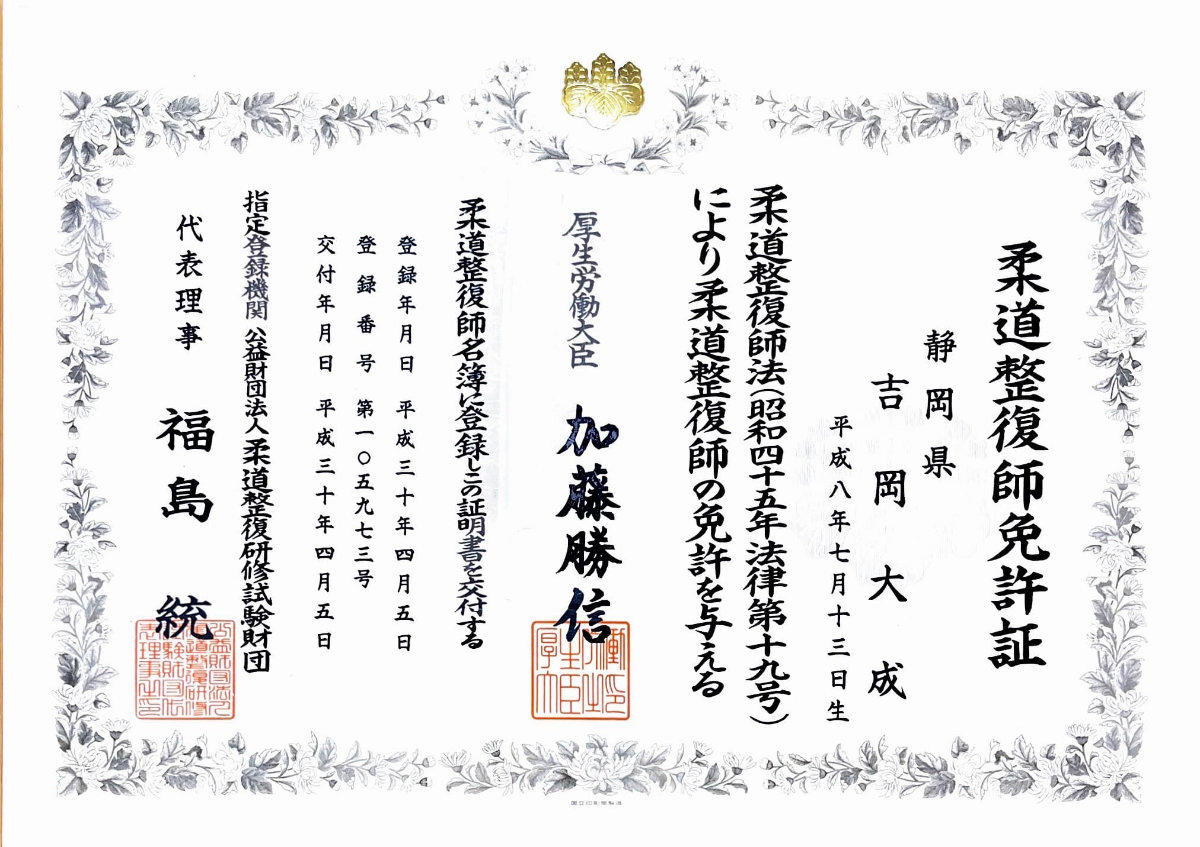 柔道整復師免許証
静岡県
吉岡大成
平成八年七月十三日生
柔道整復師法（昭和四十五年法律第十九号）
により柔道整復師の免許を与える
厚生労働大臣 加藤勝信
柔道整復師名簿に登録しこの証明書を交付する
登録年月日 平成三十年四月五日
登録番号 第一〇五九七三号
交付年月日 平成三十年四月五日
指定登録機関 公益財団法人柔道整復研修試験財団
代表理事 福島統